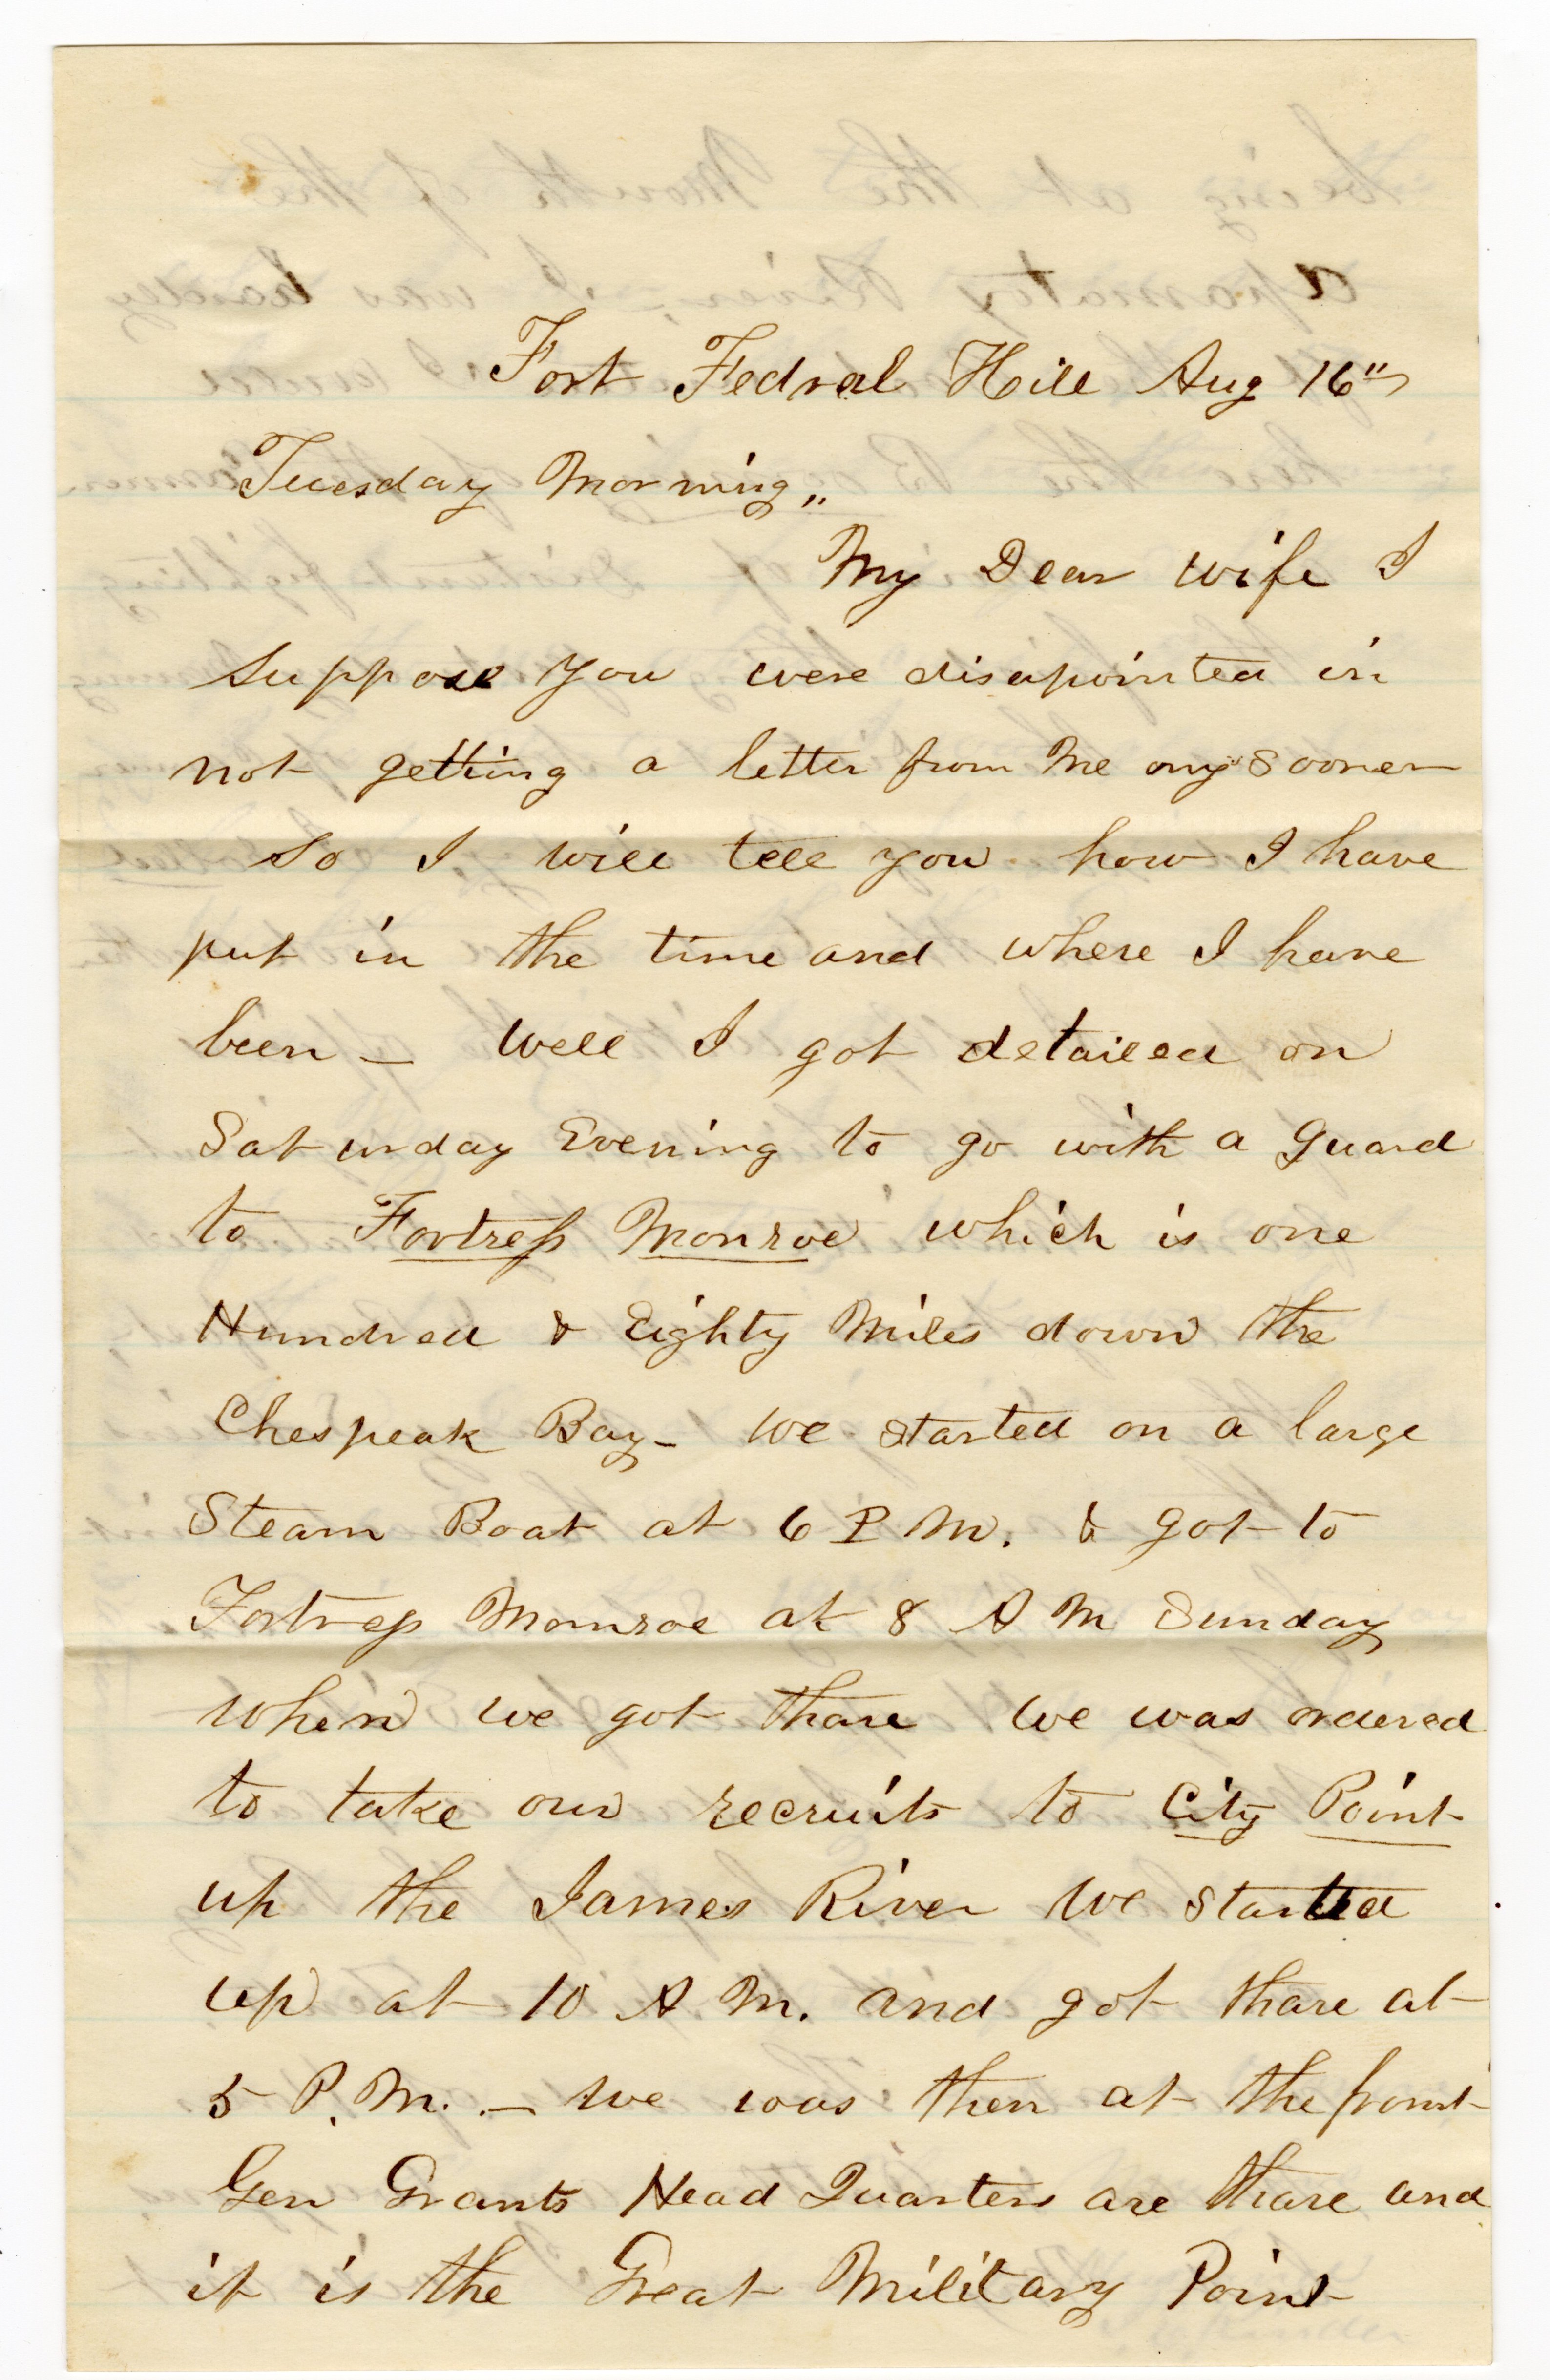 Fort Fedral Hill Aug 16"
Tuesday Morning,,
My Dear wife I
suppose you were disapointed in
not getting a letter from Me any sooner
so I will tell you how I have
put in the time and where I have
been – well I got detailed on
Saturday Evening to go with a guard
to Fortress Monroe which is one
Hundred & Eighty Miles down the
Chespeak Bay – we started on a large
Steam Boat at 6 P M. & got to
Fortress Monroe at 8 A M Sunday
when we got thare we was ordered
to take our recruits to City Point
up the James River we started
up at 10 A M. and got thare at
5 P. M. – we was then at the front
Gen Grants Head Quarters are thare and
it is the Great Military Point